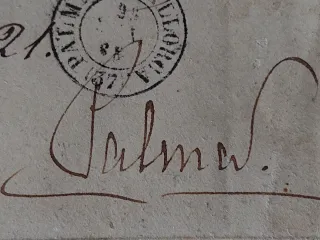 21.
PALMA MALLORCA (37)
Palma.